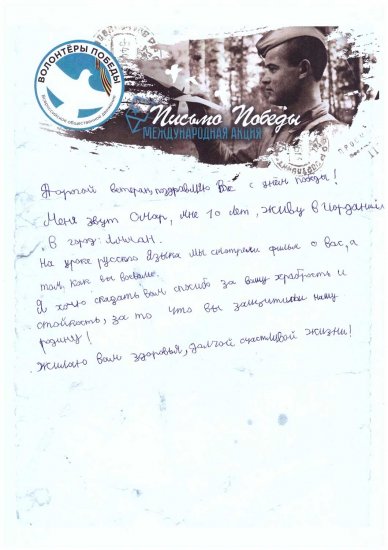 ВОЛОНТЁРЫ ПОБЕДЫ
Всероссийское общественное движение
Письмо Победы
МЕЖДУНАРОДНАЯ АКЦИЯ
Дорогой ветеран, поздравляю Вас с днём победы!
Меня зовут Омар, мне 10 лет, живу в Иордании
В город:
На уроке русского языка мы смотрели фильм о вас, о
том, как вы воевали.
Я хочу сказать вам спосибо за вашу храбрость и
стойкость, за то что вы защитили нашу
родину!
Жилаю вам здоровья, долгой счастливой жизни!